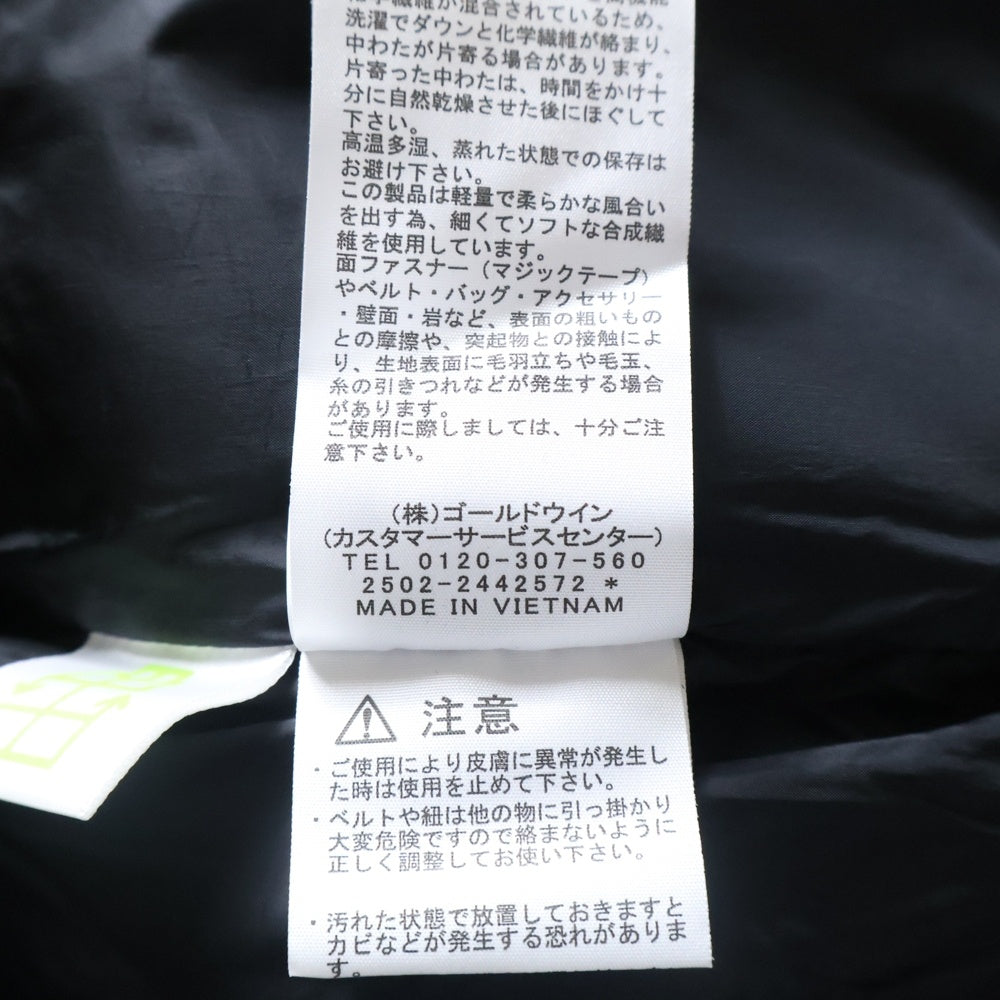 化学繊維が混合されているため、
洗濯でダウンと化学繊維が絡まり、
中わたが片寄る場合があります。
片寄った中わたは、時間をかけ十
分に自然乾燥させた後にほぐして
下さい。
高温多湿、蒸れた状態での保存は
お避け下さい。
この製品は軽量で柔らかな風合い
を出す為、細くてソフトな合成繊
維を使用しています。
面ファスナー（マジックテープ）
やベルト・バッグ・アクセサリー
・壁面・岩など、表面の粗いもの
との摩擦や、突起物との接触によ
り、生地表面に毛羽立ちや毛玉、
糸の引きつれなどが発生する場合
があります。
ご使用に際しましては、十分ご注
意下さい。
(株)ゴールドウイン
(カスタマーサービスセンター)
TEL 0120-307-560
2502-2442572 *
MADE IN VIETNAM
注意
・ご使用により皮膚に異常が発生し
た時は使用を止めて下さい。
・ベルトや紐は他の物に引っ掛かり
大変危険ですので絡まないように
正しく調整してお使い下さい。
・汚れた状態で放置しておきますと
カビなどが発生する恐れがありま
す。